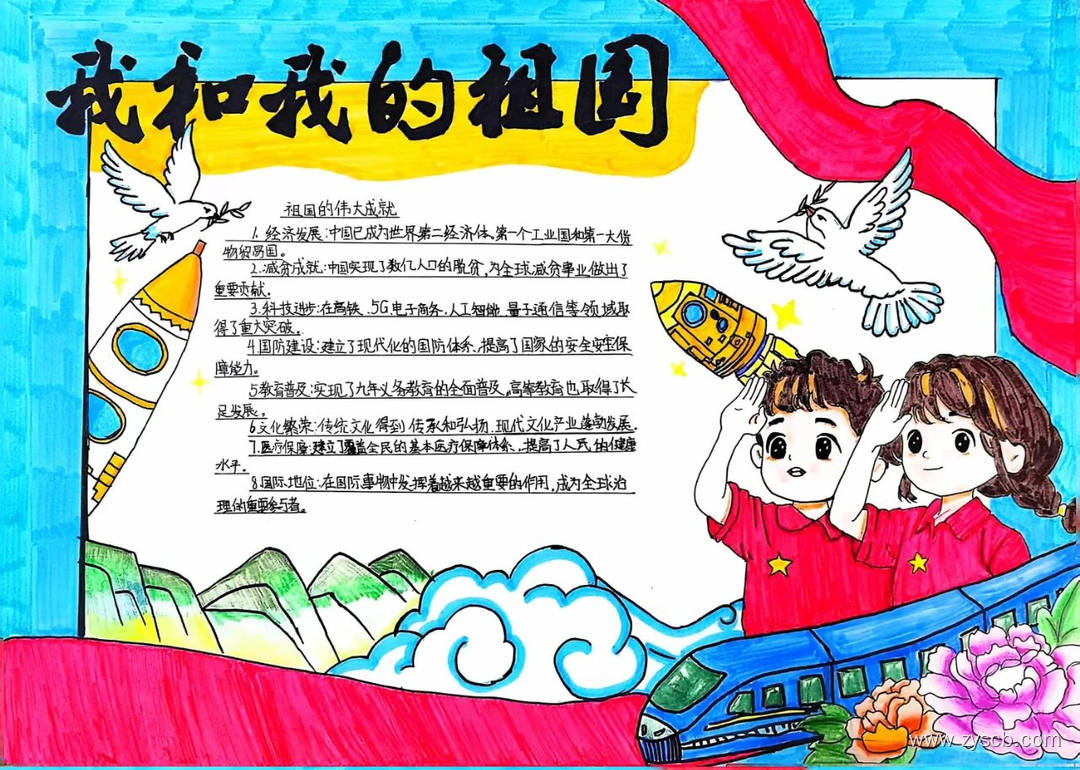 我和我的祖国
祖国的伟大成就
1. 经济发展:中国已成为世界第二经济体、第一个工业国和第一大货
物贸易国。
2.减贫成就:中国实现了数亿人口的脱贫,为全球减贫事业做出了
重要贡献。
3.科技进步:在高铁、5G电子商务,人工智能、量子通信等领域取
得了重大突破。
4.国防建设:建立了现代化的国防体系、提高了国家的安全安全保
障能力。
5教育普及:实现了九年义务教育的全面普及,高等教育也取得了长
足发展。
6文化繁荣:传统文化得到传承和弘扬、现代文化产业蓬勃发展。
7.医疗保障:建立了覆盖全民的基本医疗保障体系、提高了人民的健康
水平。
8.国际地位:在国际事物中发挥着越来越重要的作用,成为全球治
理的重要参与者。
www.zyscb.com